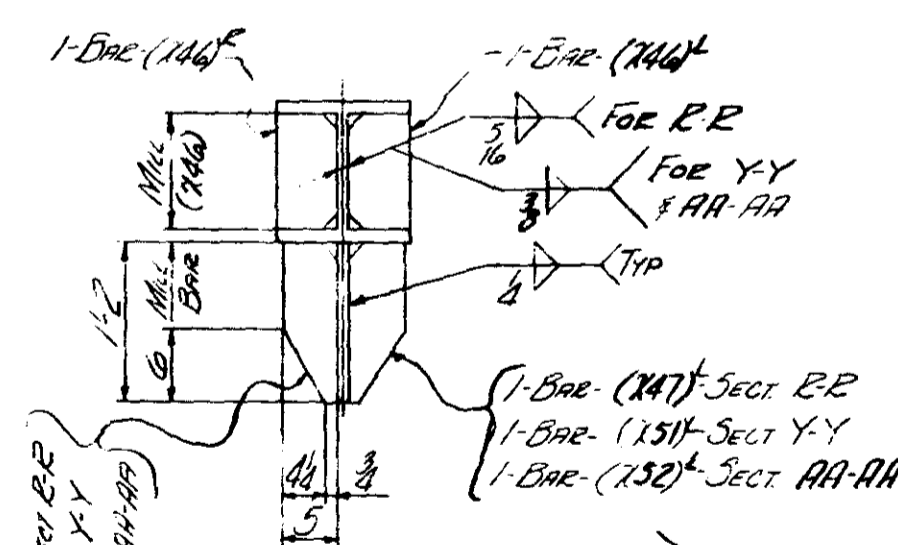 1-BAR-(X46)R
-1-BAR-(X46)L
5/16
FOR R-R
MILL
(X46)
3/8
FOR Y-Y
& AA-AA
1/4
TYP
1'-2
MILL
BAR
6
1-BAR-(X47)L-SECT. R-R
1-BAR-(X51)L-SECT Y-Y
1-BAR-(X52)L-SECT. AA-AA
4 1/4
3/4
5
R-R
Y-Y
AA-AA